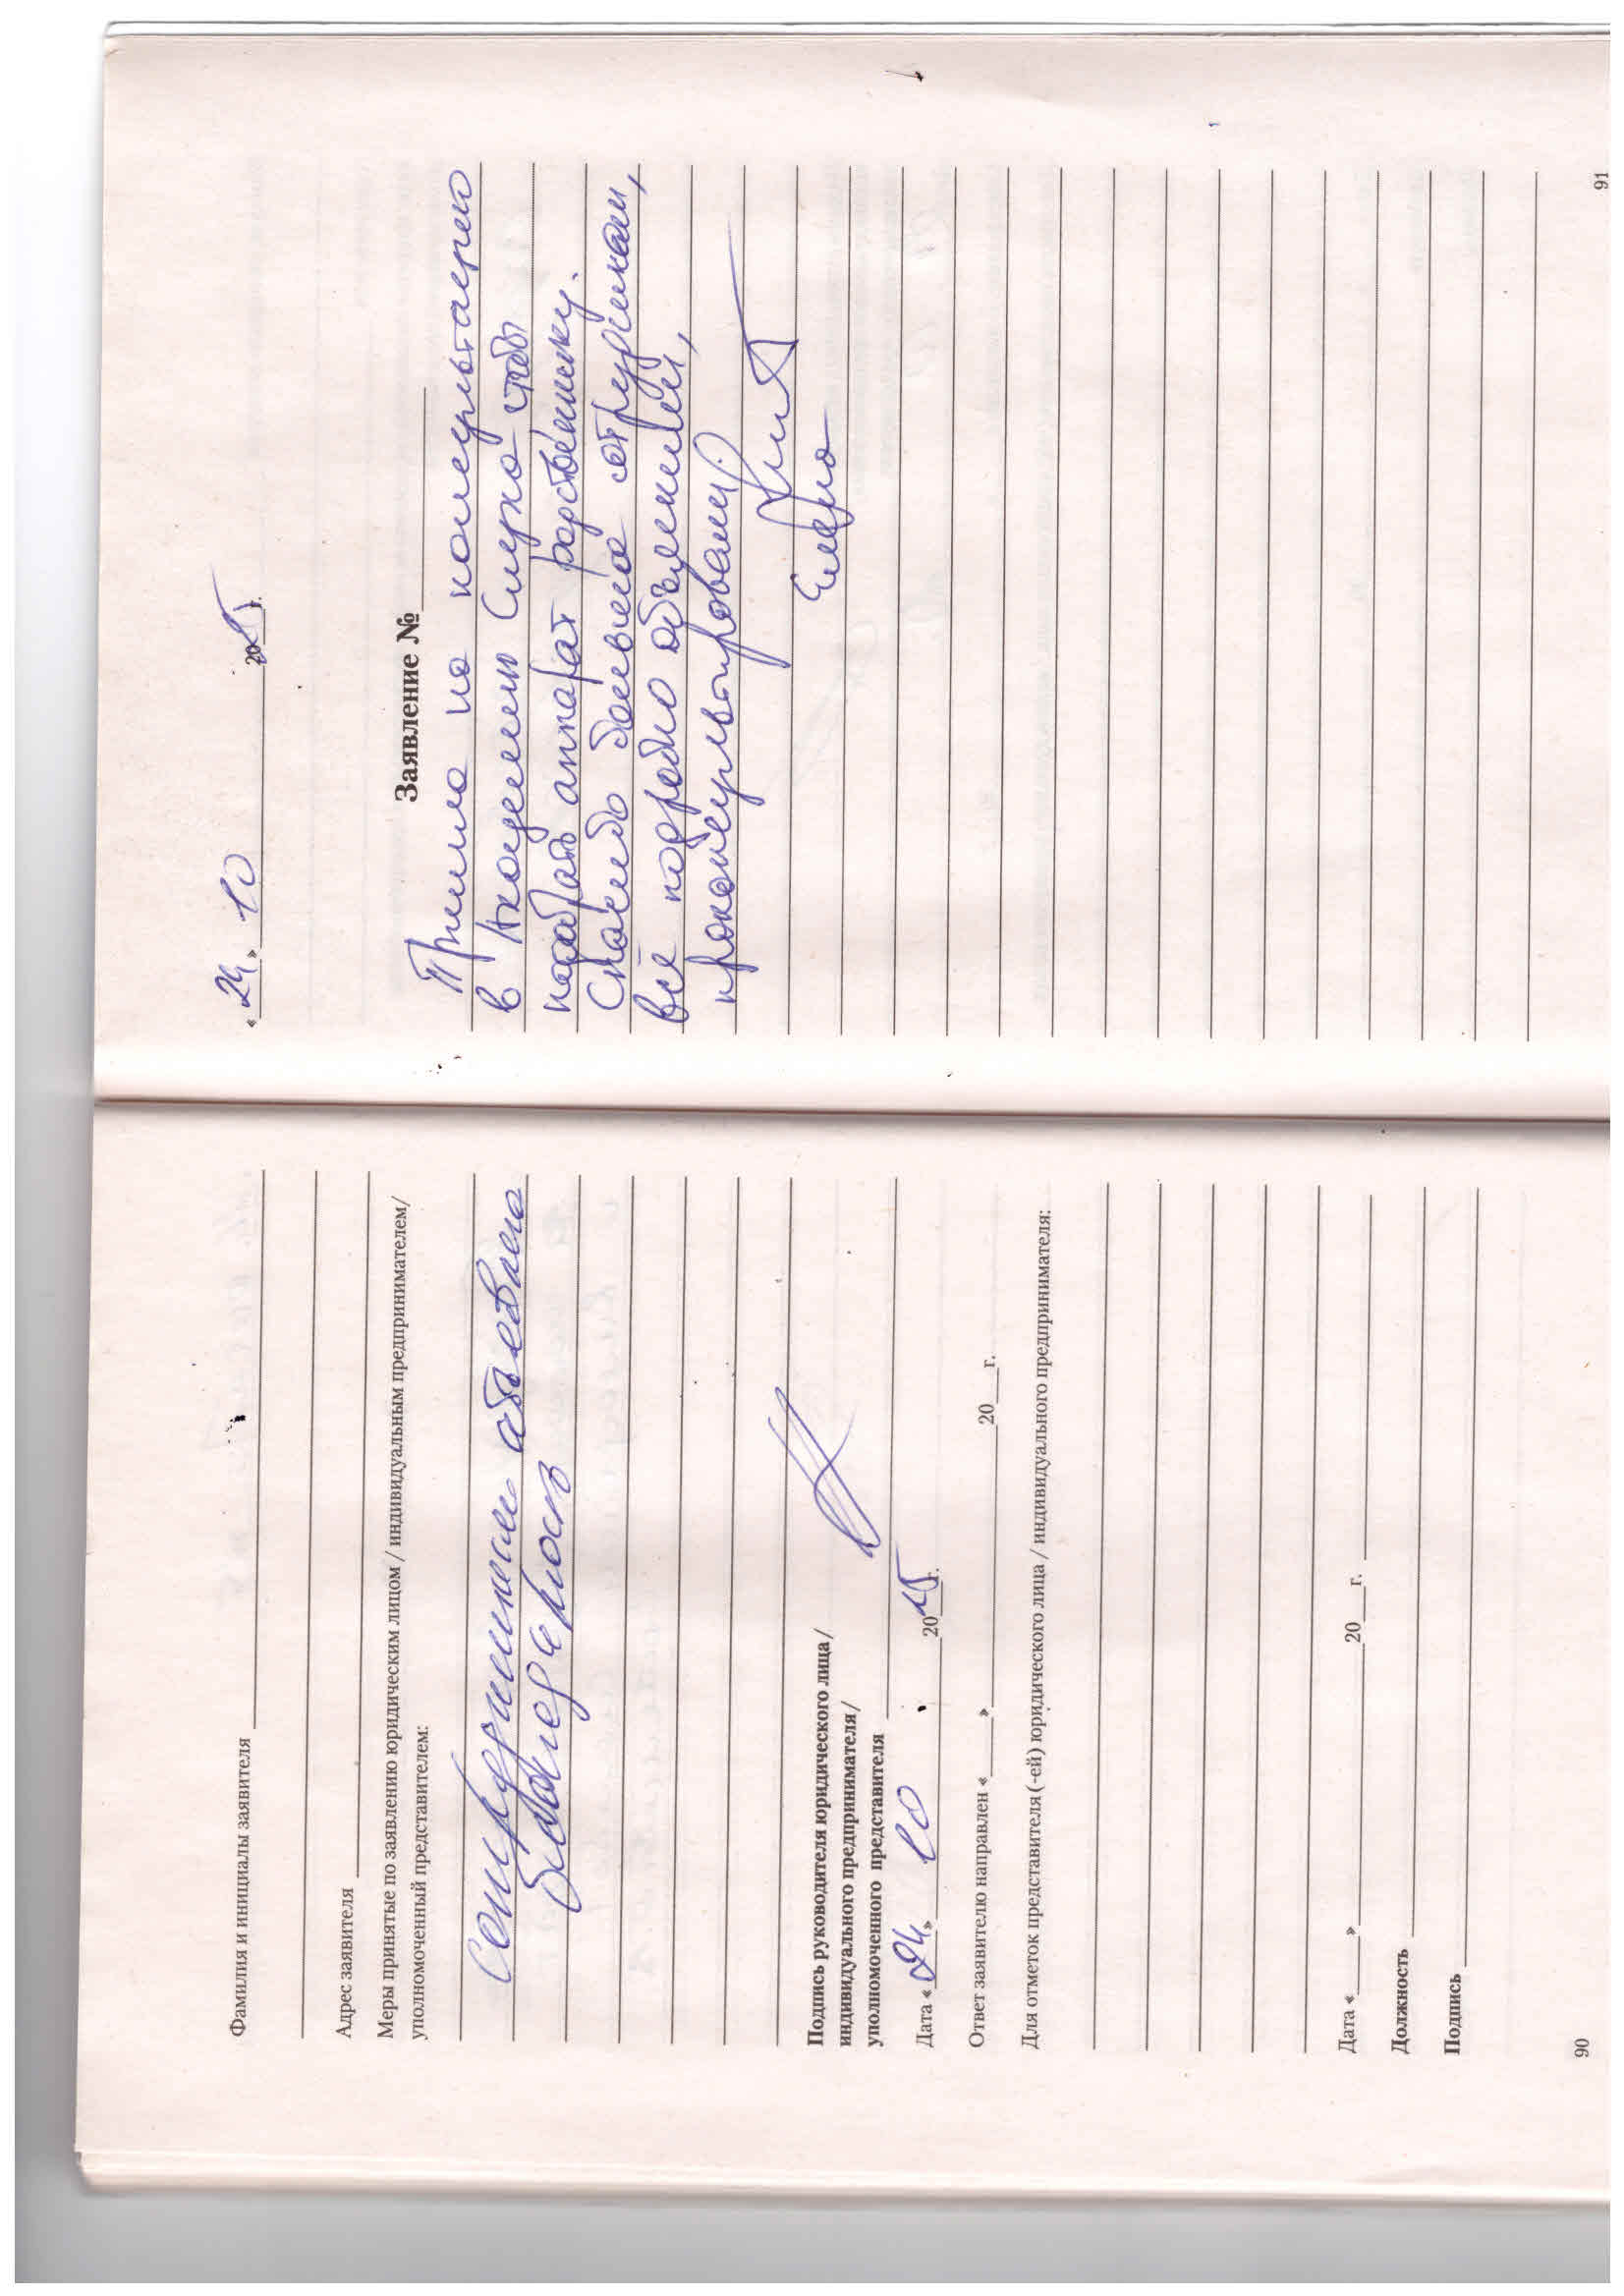 Фамилия и инициалы заявителя
Адрес заявителя
Меры принятые по заявлению юридическим лицом / индивидуальным предпринимателем/
уполномоченный представителем:
Сотрудникам объявлена
благодарность
Подпись руководителя юридического лица/
индивидуального предпринимателя/
уполномоченного представителя
Дата «24» 10 2025г.
Ответ заявителю направлен «___» 20___г.
Для отметок представителя (-ей) юридического лица / индивидуального предпринимателя:
Дата «___» 20___г.
Должность
Подпись
90
«24» 10 2025 г.
Заявление №
Пришла на консультацию
в Академию Слуха чтобы
подобрать аппарат родственнику.
Спасибо большое сотрудникам,
всё подробно объяснили,
проконсультировали.
91